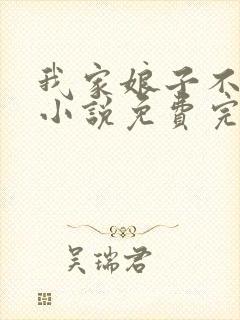 我家娘子不
小说免费完
吴瑞君